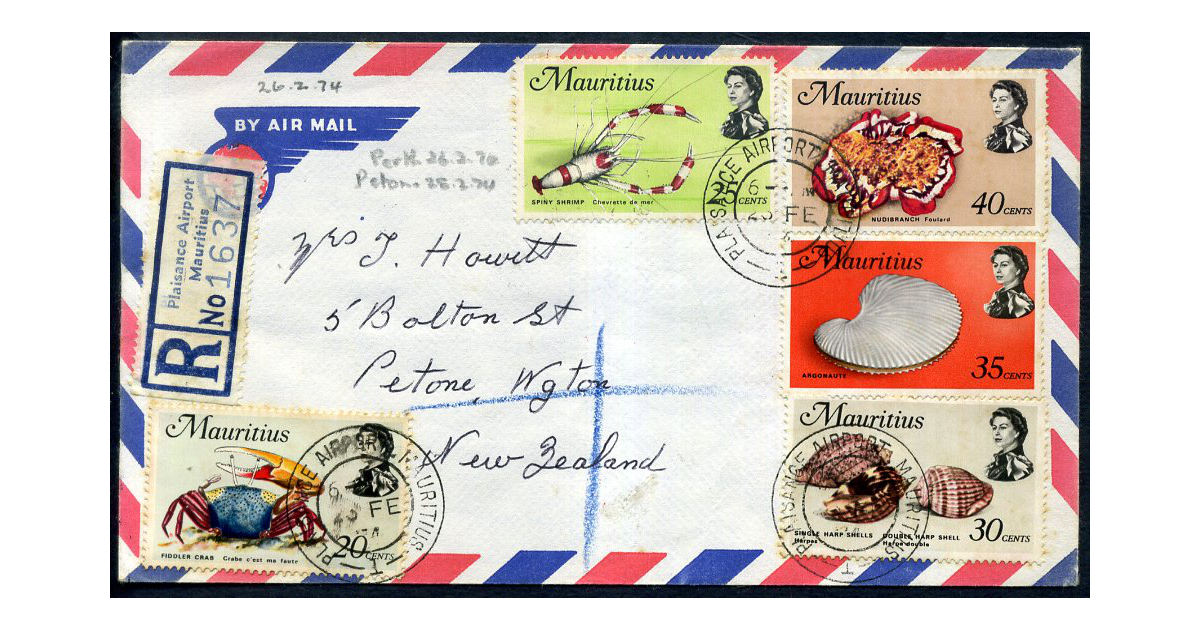 26.2.74
BY AIR MAIL
Perth 26.2.70
Petone 28.2.74
Plaisance Airport
Mauritius
R No 1637
Mrs J. Howett
5 Bolton St
Petone, Wgton
New Zealand
Mauritius
25 CENTS
SPINY SHRIMP Chevrette de mer
Mauritius
40 CENTS
NUDIBRANCH Foulard
PLAISANCE AIRPORT
6
FE
Mauritius
35 CENTS
ARGONAUTE
Mauritius
30 CENTS
SINGLE HARP SHELLS DOUBLE HARP SHELL
Harpes Harpe double
PLAISANCE AIRPORT MAURITIUS
Mauritius
20 CENTS
FIDDLER CRAB Crabe c'est ma faute
PLAISANCE AIRPORT MAURITIUS
6
FE